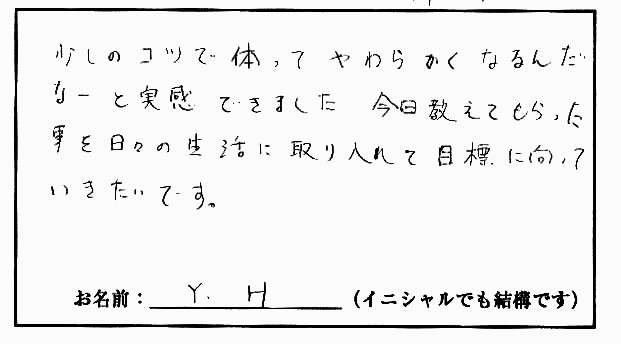 少しのコツで体ってやわらかくなるんだ
なーと実感できました 今日教えてもらった
事を日々の生活に取り入れて目標に向って
いきたいです。
お名前： Y. H （イニシャルでも結構です）